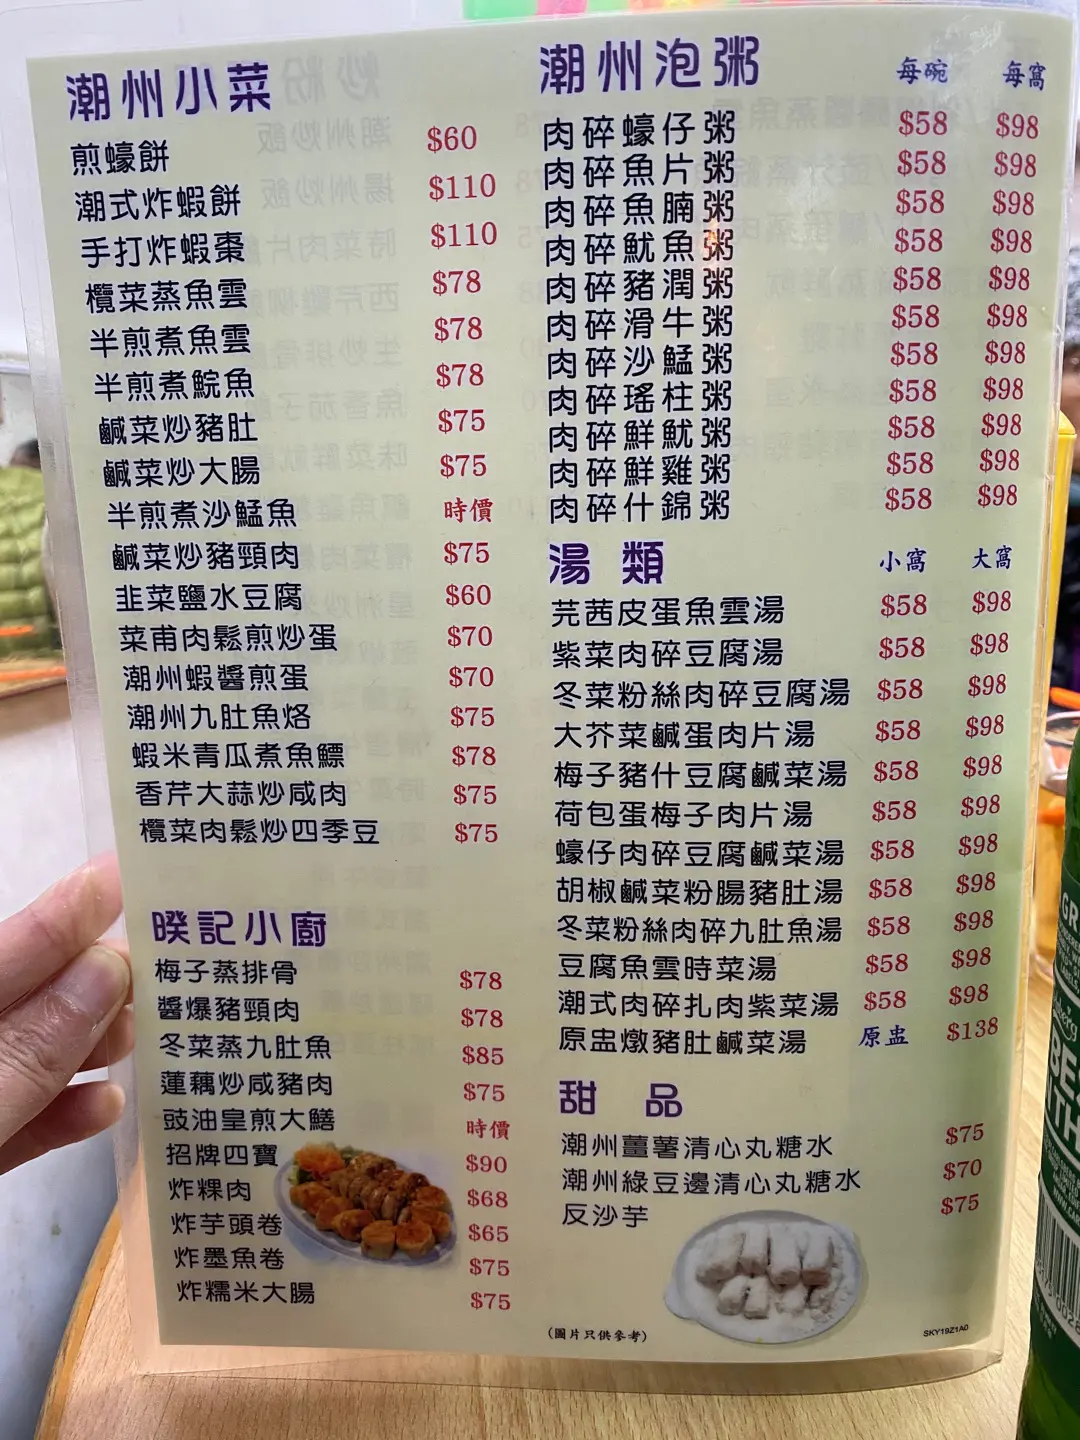 潮州小菜
煎蠔餅 $60
潮式炸蝦餅 $110
手打炸蝦棗 $110
欖菜蒸魚雲 $78
半煎煮魚雲 $78
半煎煮鯇魚 $78
鹹菜炒豬肚 $75
鹹菜炒大腸 $75
半煎煮沙鯭魚 時價
鹹菜炒豬頸肉 $75
韭菜鹽水豆腐 $60
菜甫肉鬆煎炒蛋 $70
潮州蝦醬煎蛋 $70
潮州九肚魚烙 $75
蝦米青瓜煮魚鰾 $78
香芹大蒜炒咸肉 $75
欖菜肉鬆炒四季豆 $75
暌記小廚
梅子蒸排骨 $78
醬爆豬頸肉 $78
冬菜蒸九肚魚 $85
蓮藕炒咸豬肉 $75
豉油皇煎大鱔 時價
招牌四寶 $90
炸粿肉 $68
炸芋頭卷 $65
炸墨魚卷 $75
炸糯米大腸 $75
潮州泡粥 每碗 每窩
肉碎蠔仔粥 $58 $98
肉碎魚片粥 $58 $98
肉碎魚腩粥 $58 $98
肉碎魷魚粥 $58 $98
肉碎豬潤粥 $58 $98
肉碎滑牛粥 $58 $98
肉碎沙鯭粥 $58 $98
肉碎瑤柱粥 $58 $98
肉碎鮮魷粥 $58 $98
肉碎鮮雞粥 $58 $98
肉碎什錦粥 $58 $98
湯類 小窩 大窩
芫茜皮蛋魚雲湯 $58 $98
紫菜肉碎豆腐湯 $58 $98
冬菜粉絲肉碎豆腐湯 $58 $98
大芥菜鹹蛋肉片湯 $58 $98
梅子豬什豆腐鹹菜湯 $58 $98
荷包蛋梅子肉片湯 $58 $98
蠔仔肉碎豆腐鹹菜湯 $58 $98
胡椒鹹菜粉腸豬肚湯 $58 $98
冬菜粉絲肉碎九肚魚湯 $58 $98
豆腐魚雲時菜湯 $58 $98
潮式肉碎扎肉紫菜湯 $58 $98
原盅燉豬肚鹹菜湯 原盅 $138
甜品
潮州薑薯清心丸糖水 $75
潮州綠豆邊清心丸糖水 $70
反沙芋 $75
(圖片只供參考)
SKY19Z1A0